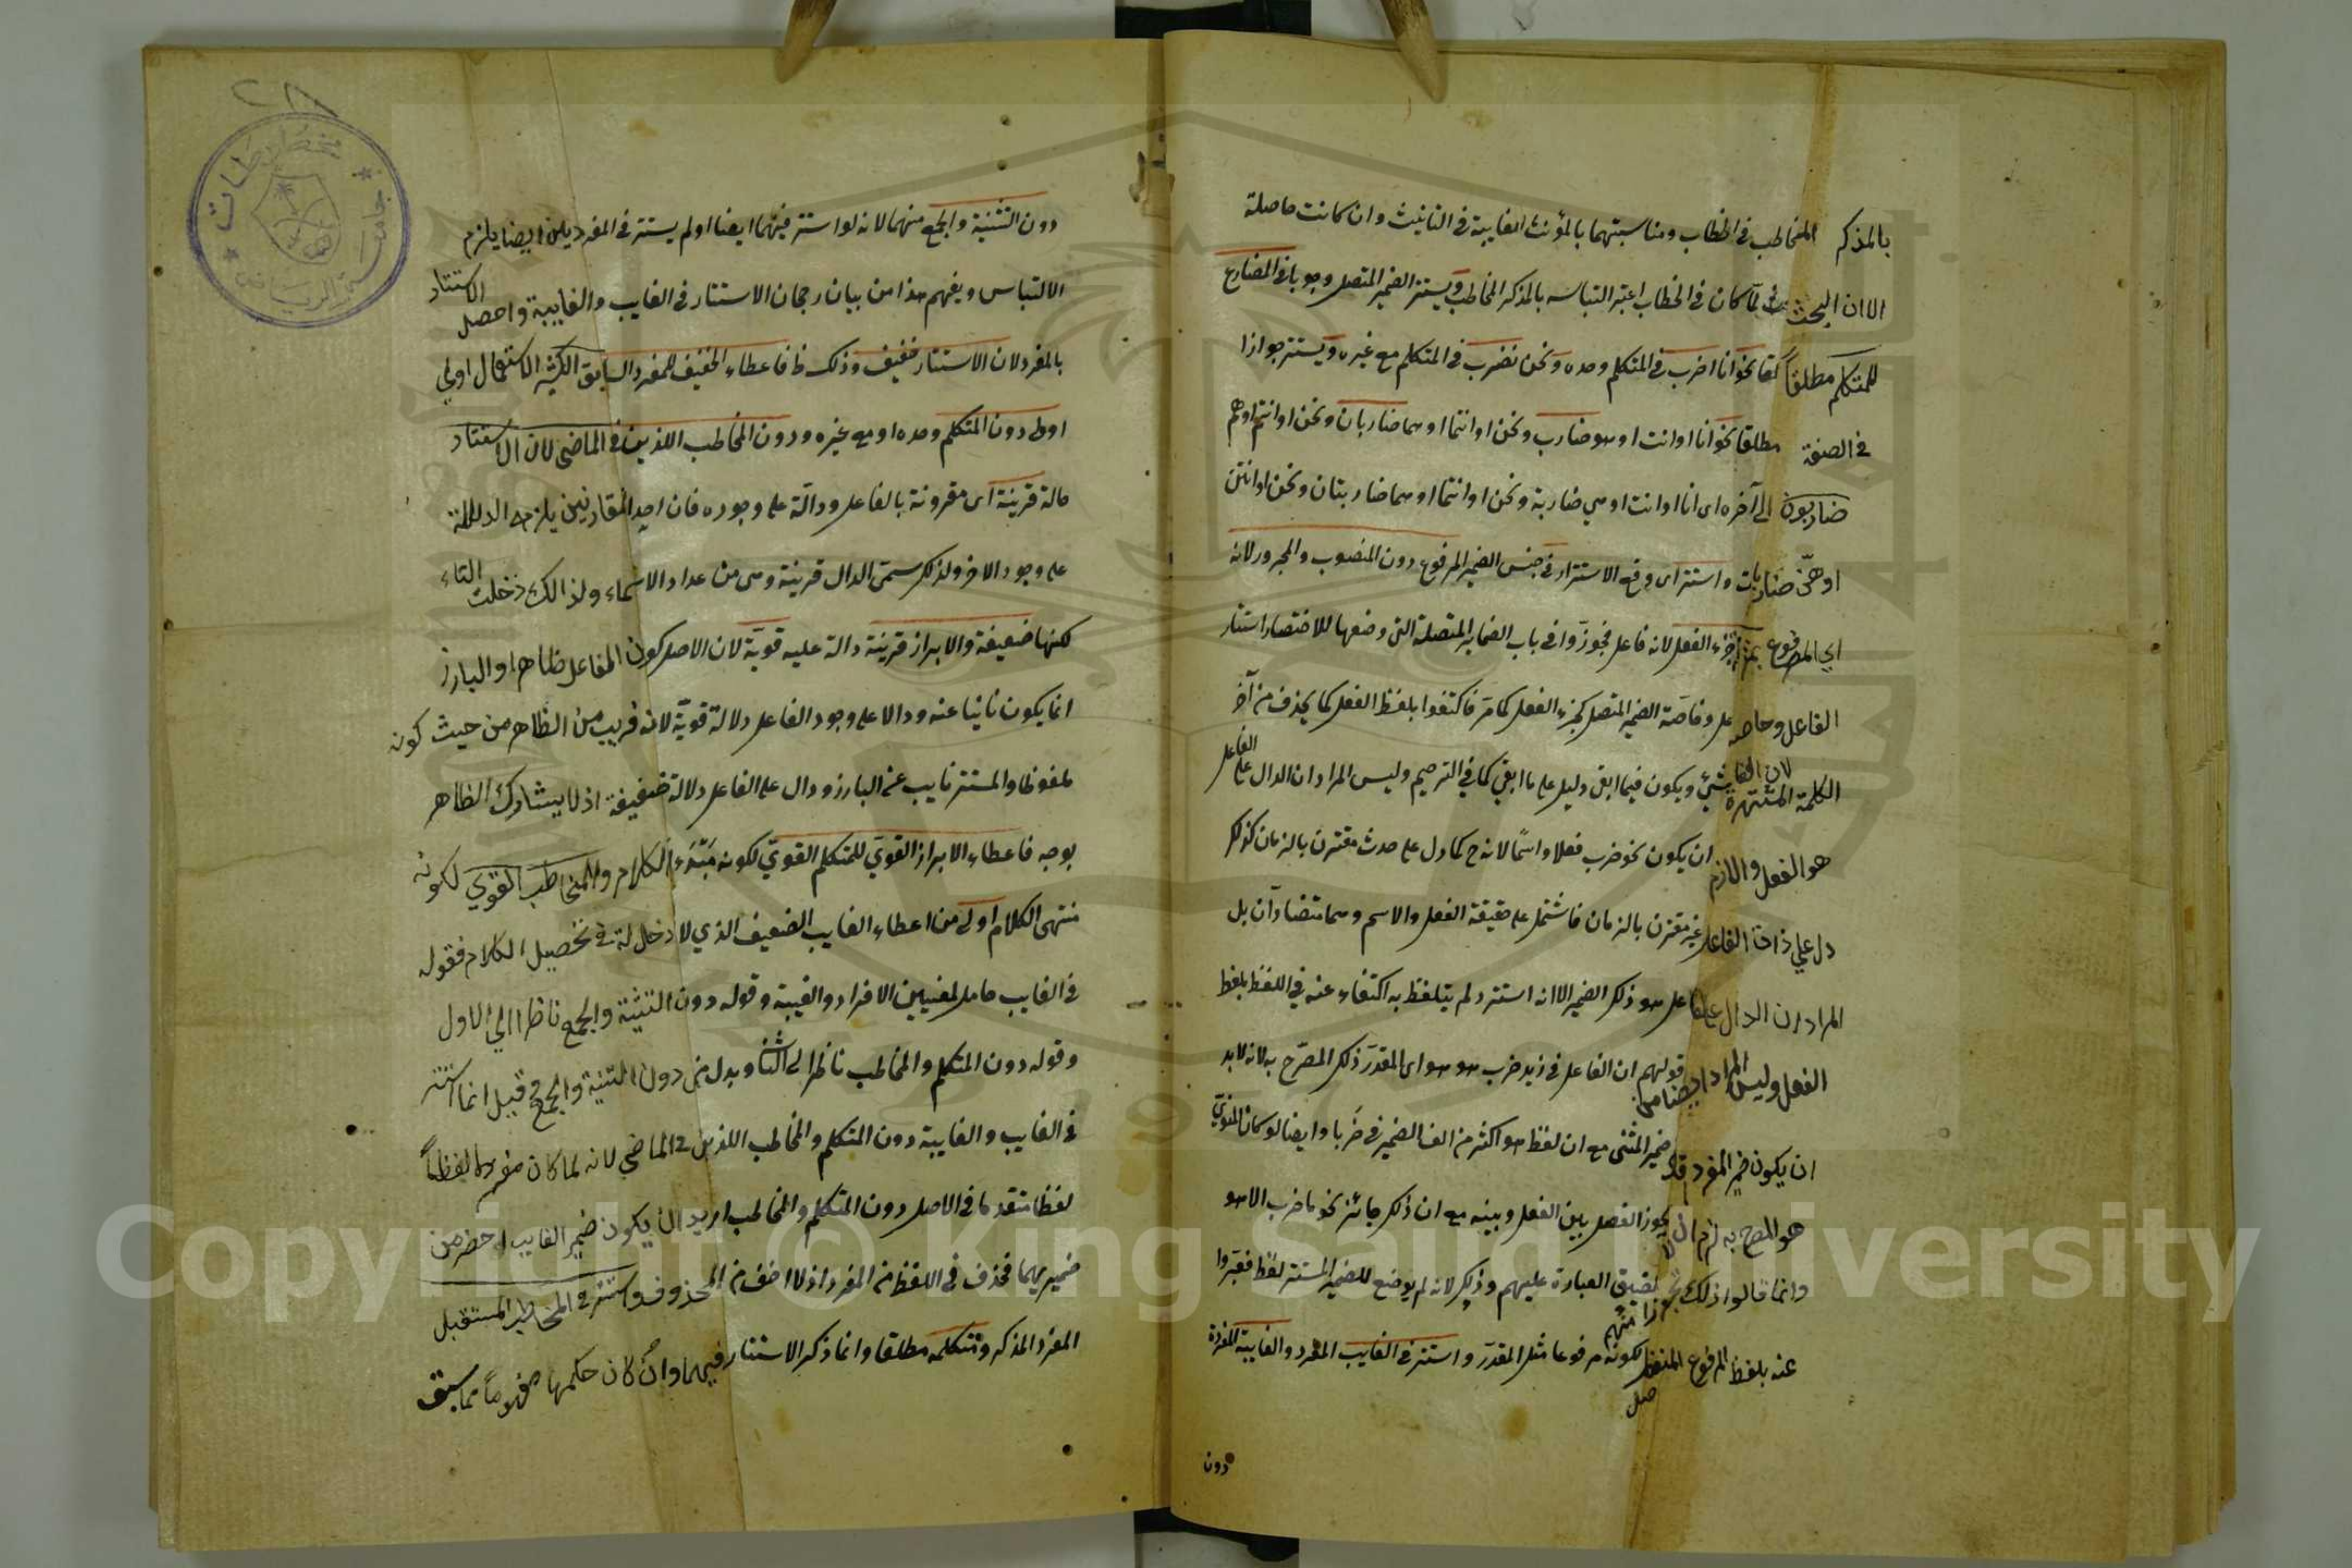 بالمذكر المخاطب في الخطاب ومناسبتهما بالمؤنث الغايبة في التانيث وان كانت حاصلة
الا ان البحث لما كان في الخطاب اعتبر التباسه بالمذكر المخاطب ويستتر الضمير المتصل وجوبا في المضارع
للمتكلم مطلقا نحو انا اضرب في المتكلم وحده ونحن نضرب في المتكلم مع غيره ويستتر جوازا
في الصفة مطلقا نحو انا او انت او هو ضارب ونحن او انتما او هما ضاربان ونحن او انتم او هم
ضاربون الى آخره اى انا او انت او هي ضاربة ونحن او انتما او هما ضاربتان ونحن او انتن
او هنّ ضاربات واستتر اى وقع الاستتار في جنس الضمير المرفوع دون المنصوب والمجرور لانه
اي المرفوع بمنزلة جزء الفعل لانه فاعل فجوزوا في باب الضماير المتصلة التي وضعها للاختصار استتار
الفاعل وخاصة الضمير المتصل كجزء الفعل كما مرّ فاكتفوا بلفظ الفعل كما يحذف من آخر
الكلمة المشتهرة شئ ويكون فيما ابقى دليل على ما القي كما في الترخيم وليس المراد ان الدال على الفاعل
هو الفعل والا لزم ان يكون نحو ضرب فعلا واسمًا لانه ح كما دل على حدث مقترن بالزمان كذلك
دل على ذات الفاعل غير مقترن بالزمان فاشتمل على حقيقة الفعل والاسم وهما متضادان بل
المراد ان الدال على الفاعل هو ذلك الضمير الا انه استتر ولم يتلفظ به اكتفاء عنه في اللفظ بلفظ
الفعل وليس المراد ايضا من قولهم ان الفاعل في زيد ضرب هو هو اى المقدر ذلك المصرّح به لانه لابد
ان يكون ضمير المفرد اقل من ضمير المثنى مع ان لفظ هو اكثر من الف الضمير في ضربا وايضا لو كان المنويّ
هو المصرح به لزم ان لا يجوز الفصل بين الفعل وبينه مع ان ذلك جائز نحو ما ضرب الا هو
وانما قالوا ذلك تجوزا منهم لضيق العبارة عليهم وذلك لانه لم يوضع للضمير المستتر لفظ فعبّروا
عنه بلفظ المرفوع المنفصل لكونه مرفوعا مثل المقدر واستتر في الغايب المفرد والغايبة المفردة
دون
دون التثنية والجمع منهما لانه لو استتر فيهما ايضا او لم يستتر في المفرد يلزم
الالتباس ويفهم هذا من بيان رجحان الاستتار في الغايب والغايبة واحصل الاستتار
بالمفرد لان الاستتار خفيف وذلك ظ فاعطاء الخفيف للمفرد السابق الكثير الاستعمال اولى
اولى دون المتكلم وحده او مع غيره ودون المخاطب اللذين في الماضى لان الاستتار
حالة قرينة اى مقرونة بالفاعل ودالّة على وجوده فان احد المقارنين يلزمه الدلالة
على وجود الاخر ولذلك سمى الدال قرينة وهي من عداد الاسماء ولذالك دخلت التاء
لكنها ضعيفة والابراز قرينة دالة عليه قويّة لان الاصل كون الفاعل ظاهرا والبارز
انما يكون نائبا عنه ودالا على وجود الفاعل دلالة قويّة لانه قريب من الظاهر من حيث كونه
ملفوظا والمستتر نايب عن البارز ودال على الفاعل دلالة ضعيفة اذ لا يشارك الظاهر
بوجه فاعطاء الابراز القويّ للمتكلم القويّ لكونه مبتدء الكلام وللمخاطب القوي لكونه
منتهى الكلام اولى من اعطاء الغايب الضعيف الذي لا دخل له في تحصيل الكلام فقوله
في الغايب حامل لمعنيين الافراد والغيبة وقوله دون التثنية والجمع ناظرا الى الاول
وقوله دون المتكلم والمخاطب ناظرا الى الثا وبدل من دون التثنية والجمع قيل انما استتر
في الغايب والغايبة دون المتكلم والمخاطب اللذين في الماضي لانه لما كان مفسرهما لفظا
لفظا متقدما في الاصل دون المتكلم والمخاطب اريد ان يكون ضمير الغايب اخصر من
ضميريهما فحذف في اللفظ من المفرد اذ لا اخف من المحذوف واستتر في المخاطب المستقبل
المفرد المذكر ومتكلمه مطلقا وانما ذكر الاستتار فيهما وان كان حكمها مفهوما مما سبق
جامعة الرياض
مخطوطات
Copyright © King Saud University